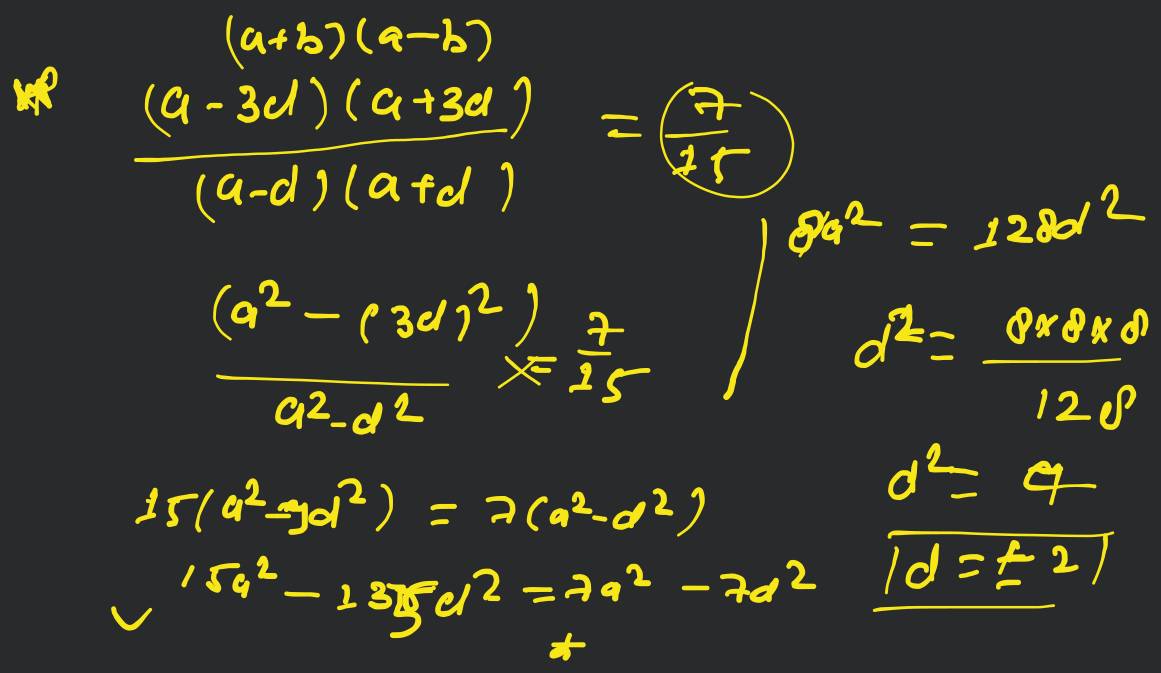 (a+b)(a-b)
(a-3d)(a+3d)
(a-d)(a+d)
= 7/15
(a² - (3d)²)
a²-d²
= 7/15
15(a²-9d²) = 7(a²-d²)
15a² - 135d² = 7a² - 7d²
8a² = 128d²
d² = 8×8×8
128
d² = 4
d = ± 2